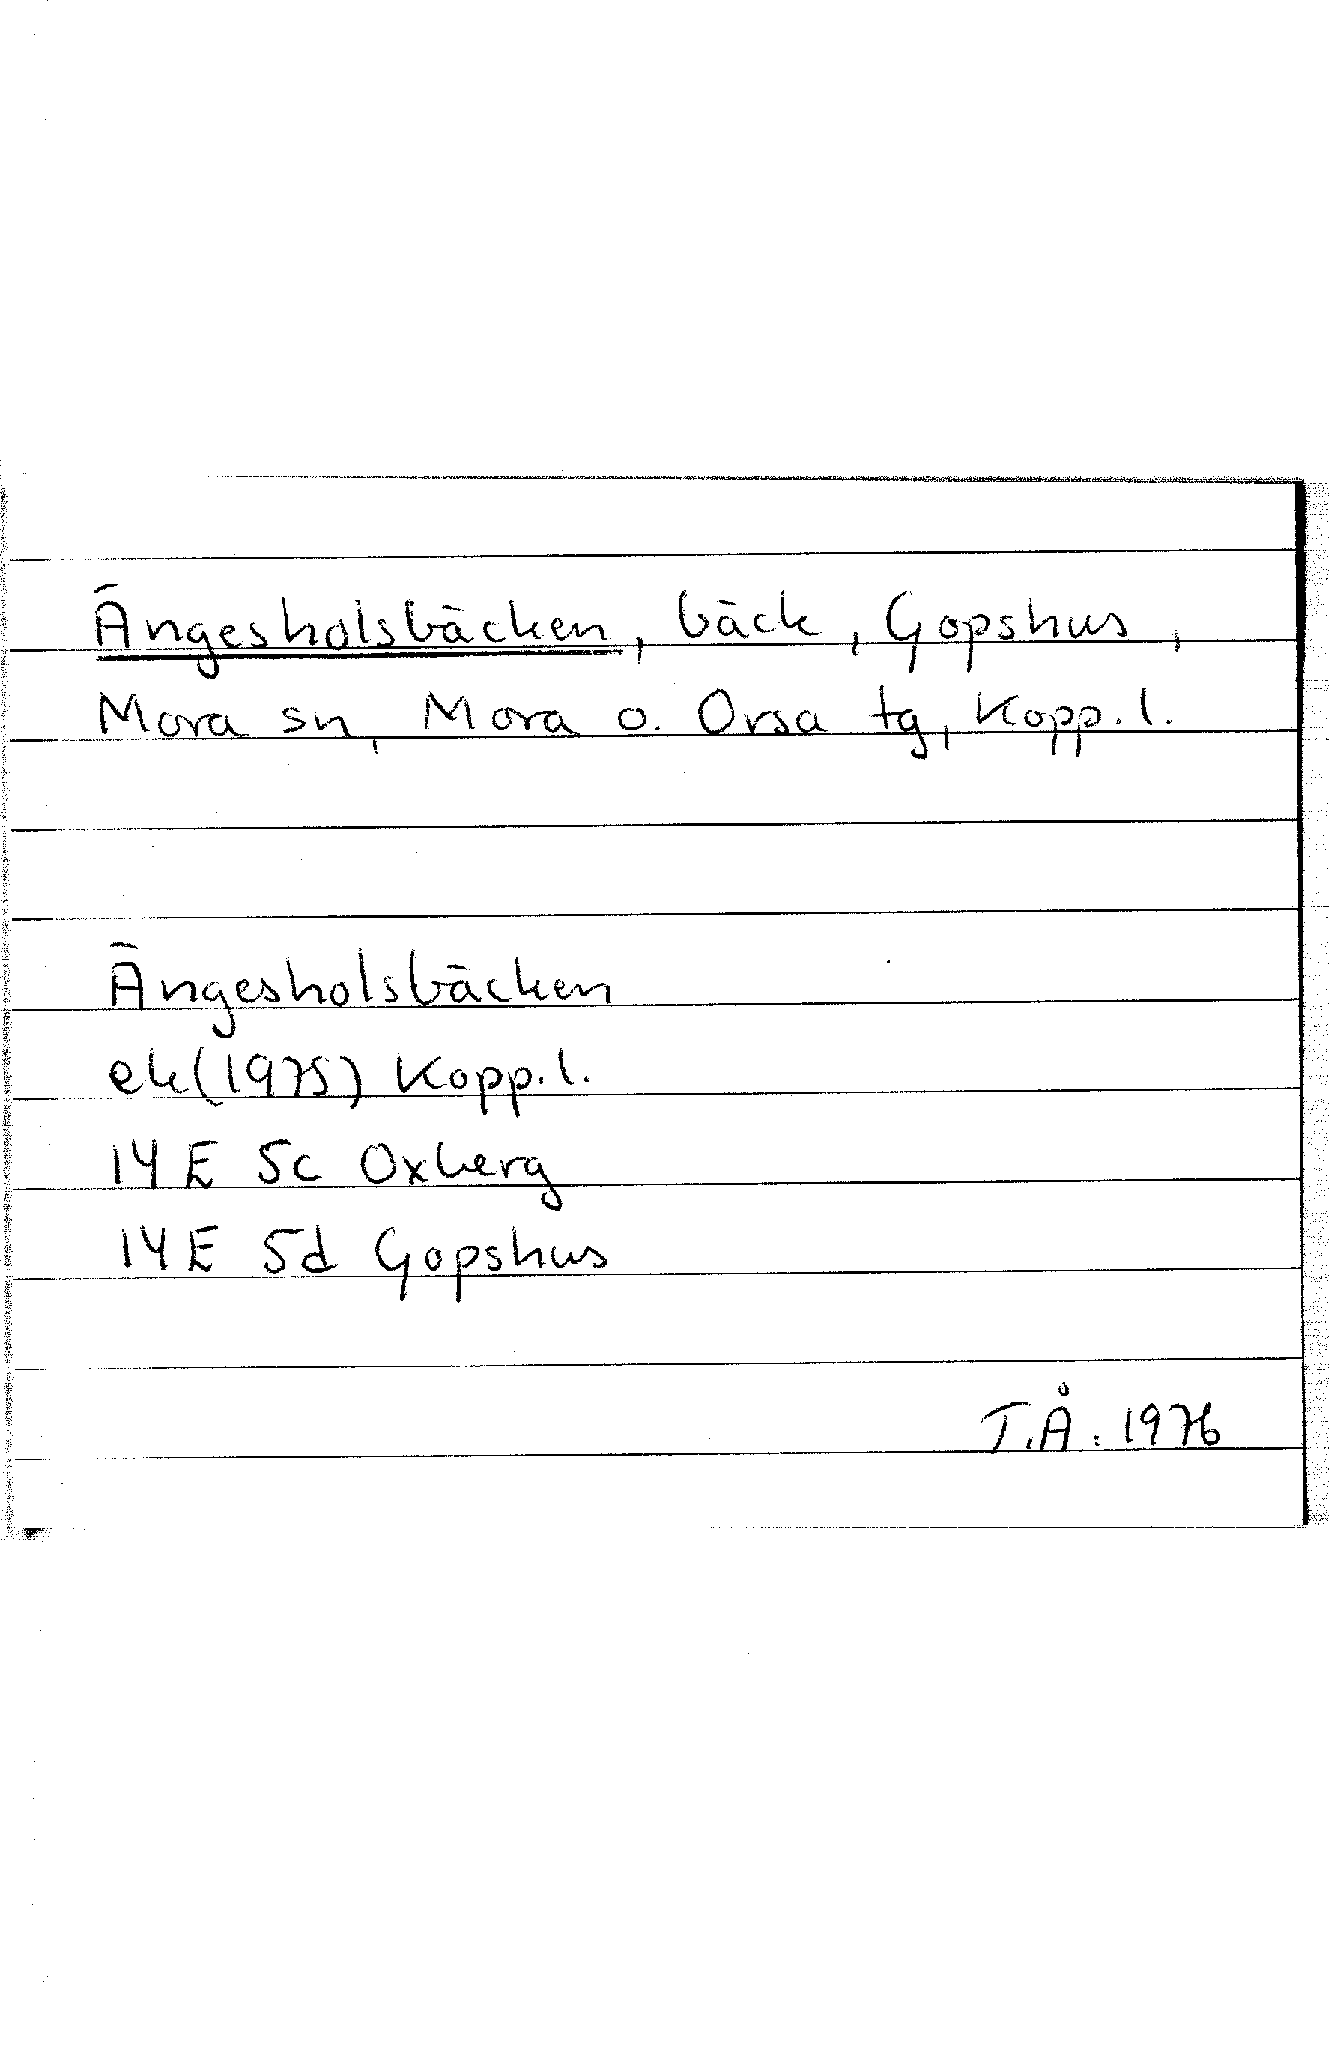 Ängesholsbäcken, bäck, Gopshus,
Mora sn, Mora o. Orsa tg, Kopp. l.
Ängesholsbäcken
ek (1975) Kopp. l.
14 E 5c Oxberg
14 E 5d Gopshus
T.Å. 1976